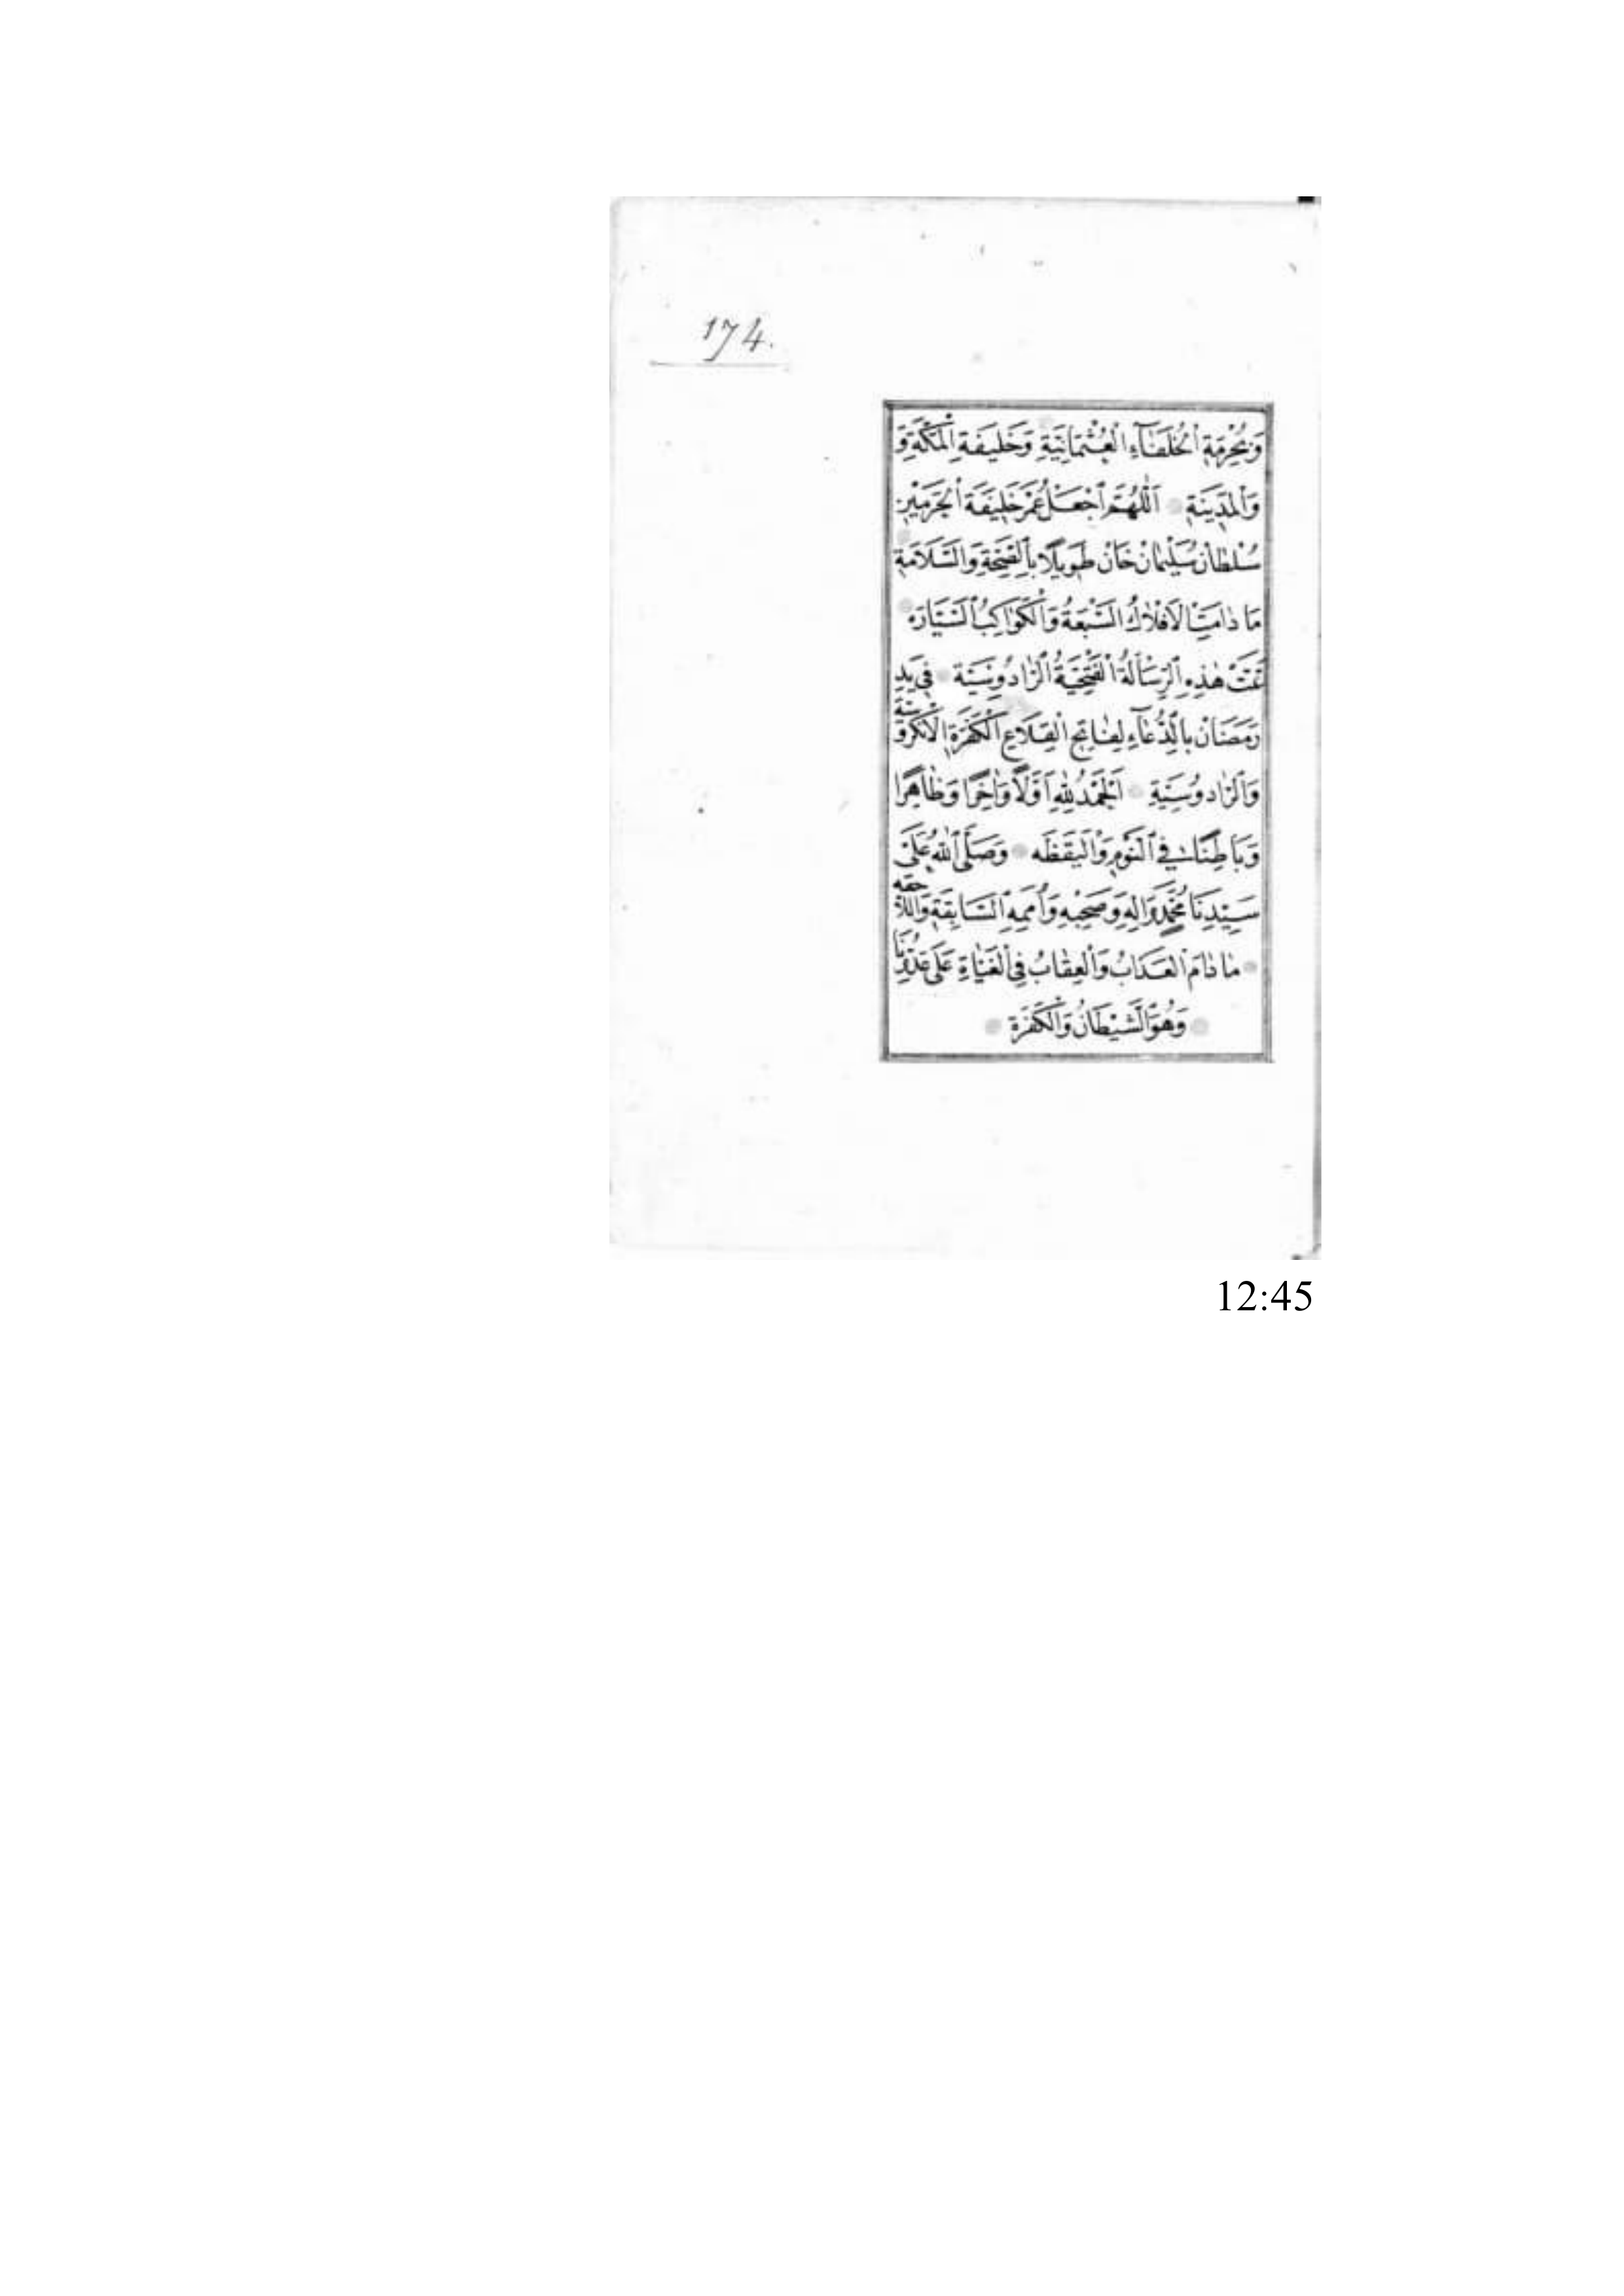 174.
وَبِحُرْمَةِ الْخُلَفَآءِ الْعُثْمَانِيَّةِ وَخَلِيفَةِ الْمَكَّةِ وَ
وَالْمَدِينَةِ اَللّٰهُمَّ اجْعَلْ عُمْرَ خَلِيفَةِ الْحَرَمَيْنِ
سُلْطَانْ سُلَيْمَانْ خَانْ طَوِيلًا بِالصِّحَّةِ وَالسَّلَامَةِ
مَا دَامَتِ الْاَفْلَاكُ السَّبْعَةُ وَالْكَوَاكِبُ السَّيَّارَه
تَمَّتْ هٰذِهِ الرِّسَالَةُ الْفَتْحِيَّةُ الرَّادُوسِيَّة فِى يَدِ
رَمَضَانْ بِالدُّعَآءِ لِفَاتِحِ الْقِلَاعِ الْكَفَرَةِ الْاَنْكَرُوسِيَّة
وَالرَّادُوسِيَّةِ اَلْحَمْدُ لِلّٰهِ اَوَّلًا وَاٰخِرًا وَظَاهِرًا
وَبَاطِنًا فِى النَّوْمِ وَالْيَقَظَه وَصَلَّى اللهُ عَلَى
سَيِّدِنَا مُحَمَّدٍ وَاٰلِهِ وَصَحْبِهِ وَاُمَمِهِ السَّابِقَةِ وَاللَّاحِقَه
مَا دَامَ الْعَذَابُ وَالْعِقَابُ فِى عَلَى عَدُوِّنَا
وَهُوَ الشَّيْطَانُ وَالْكَفَرَة
12:45